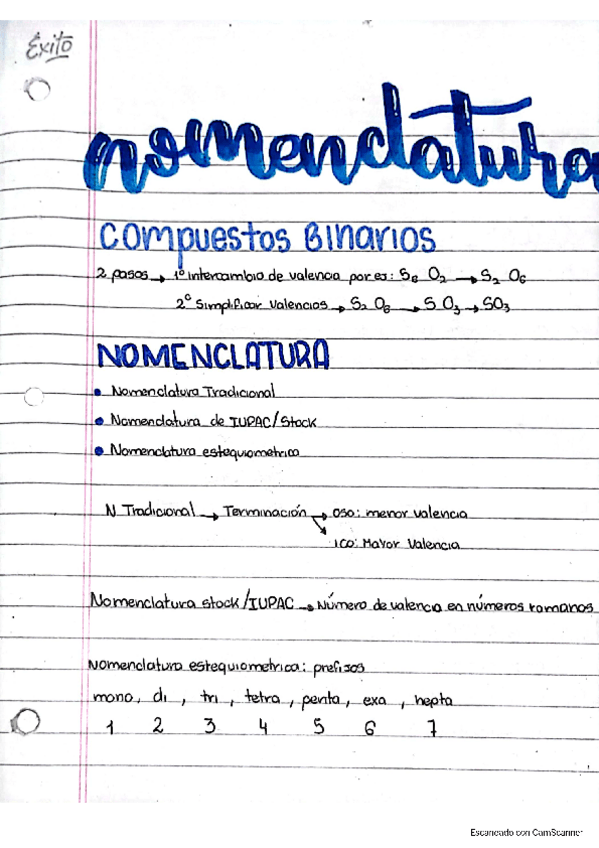 Éxito
nomenclatura
COMPUESTOS BINARIOS
2 pasos → 1º intercambio de valencia por es: S6 O2 → S2 O6
2º Simplificar Valencias → S2 O6 → S O3 → SO3
NOMENCLATURA
• Nomenclatura Tradicional
• Nomenclatura de IUPAC/Stock
• Nomenclatura estequiometrica
N Tradicional → Terminación → oso: menor valencia
→ ico: Mayor Valencia
Nomenclatura stock/IUPAC → Número de valencia en números romanos
Nomenclatura estequiometrica: prefijos
mono, di, tri, tetra, penta, exa, hepta
1 2 3 4 5 6 7
Escaneado con CamScanner